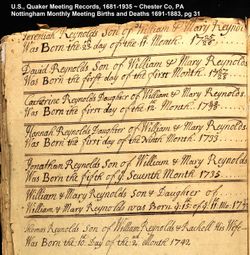 U.S., Quaker Meeting Records, 1681-1935 ~ Chester Co, PA
Nottingham Monthly Meeting Births and Deaths 1691-1883, pg 31
Jeremiah Reynolds Son of William & Mary Reynolds
Was Born the day of the Month.
David Reynolds Son of William & Mary Reynolds
Was Born the first day of the first Month.
Catherine Reynolds Daughter of William & Mary Reynolds
Was Born the first day of the 12th Month.
Hannah Reynolds Daughter of William & Mary Reynolds
Was Born the first day of the Month 1733
Jonathan Reynolds Son of William & Mary Reynolds
Was Born the fifth of ye Seventh Month 1735
William & Mary Reynolds Son & Daughter of
William & Mary Reynolds was Born ye 15th of ye Mo:
Reynolds Son of William Reynolds & Rachell His Wife
Was Born the 10 Day of the 2d Month 1742